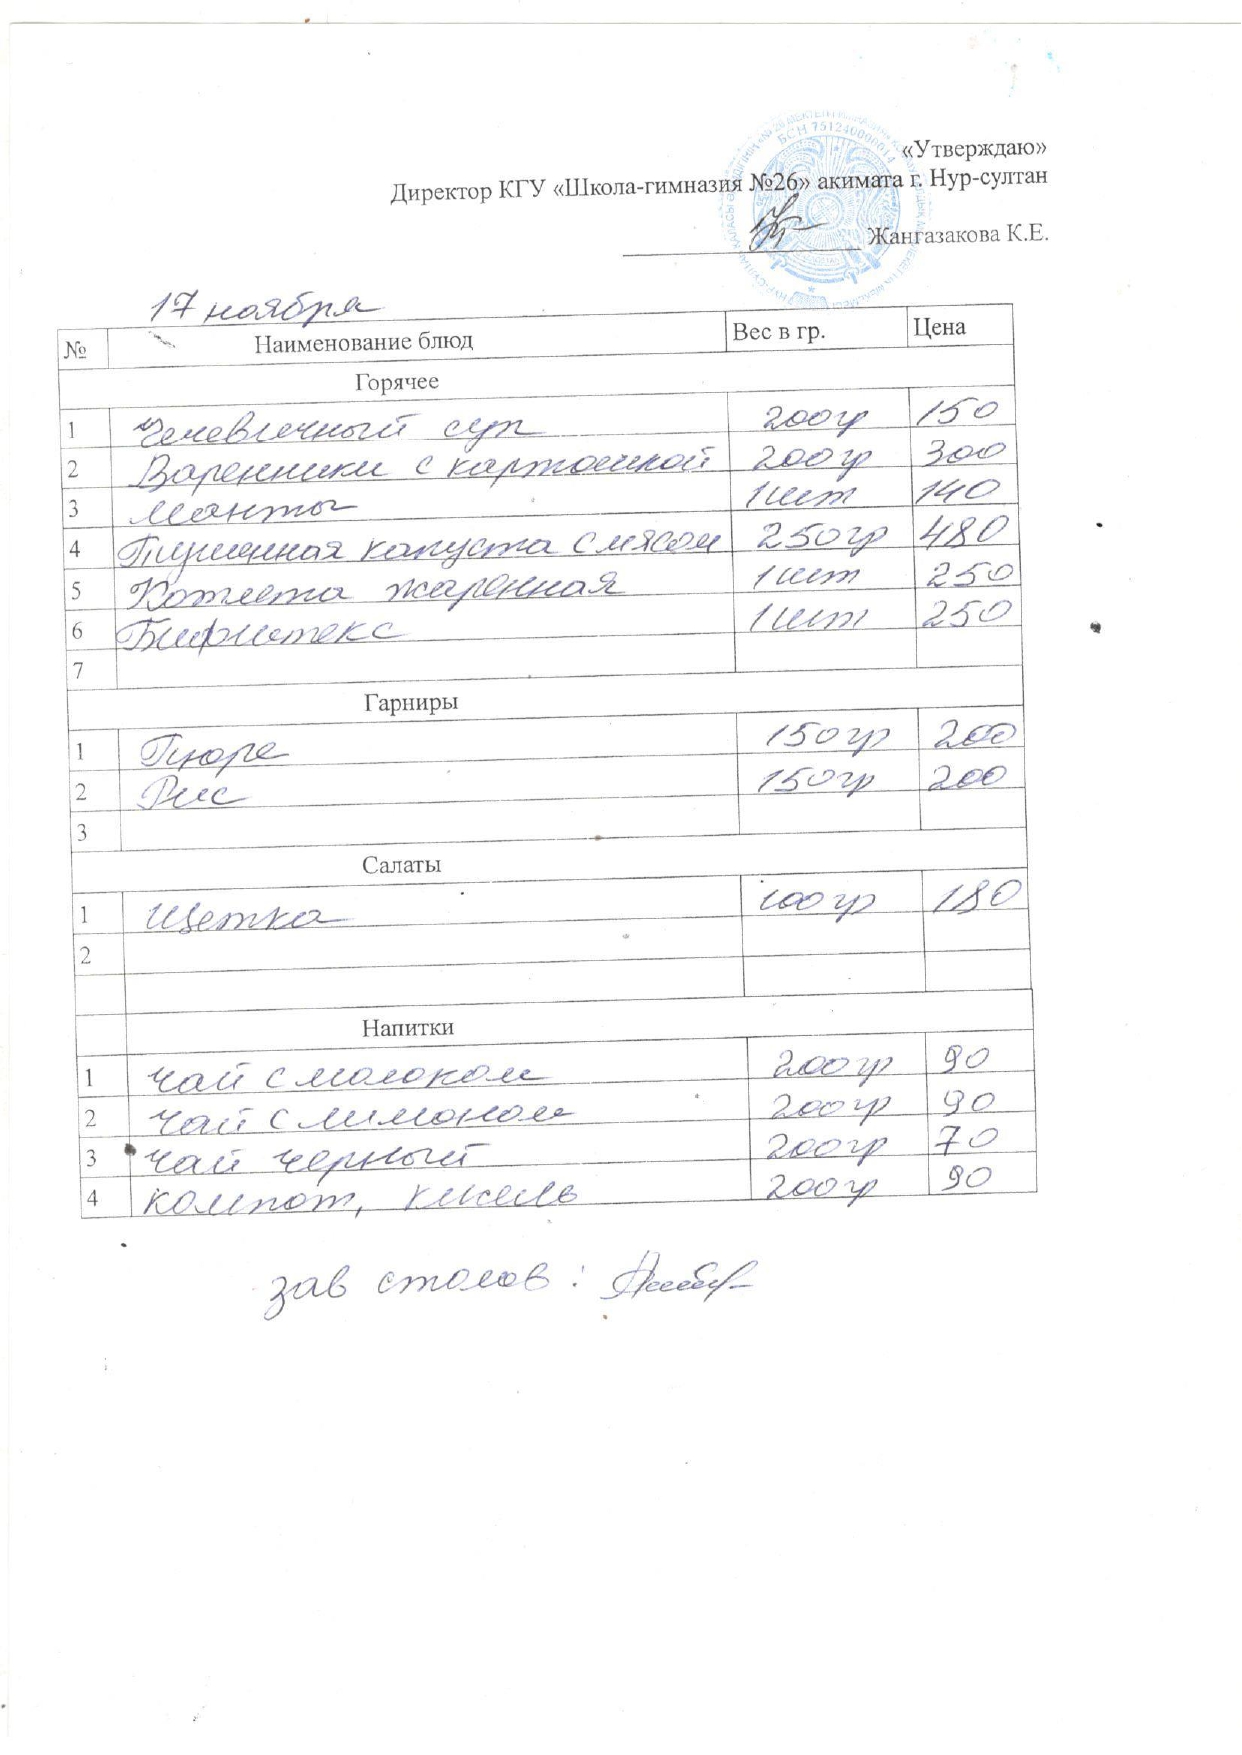 «Утверждаю»
Директор КГУ «Школа-гимназия №26» акимата г. Нур-султан
Жангазакова К.Е.
БСН 751240000014
17 ноября
№ Наименование блюд Вес в гр. Цена
Горячее
1 Чечевичный суп 200гр 150
2 Варенники с картошкой 200гр 300
3 Манты 1шт 140
4 Тушенная капуста с мясом 250гр 480
5 Котлета жаренная 1шт 250
6 Бифштекс 1шт 250
7
Гарниры
1 Пюре 150гр 200
2 Рис 150гр 200
3
Салаты
1 Щетка 100гр 180
2
Напитки
1 чай с молоком 200гр 90
2 чай с лимоном 200гр 90
3 чай черный 200гр 70
4 компот, кисель 200гр 90
зав столов: